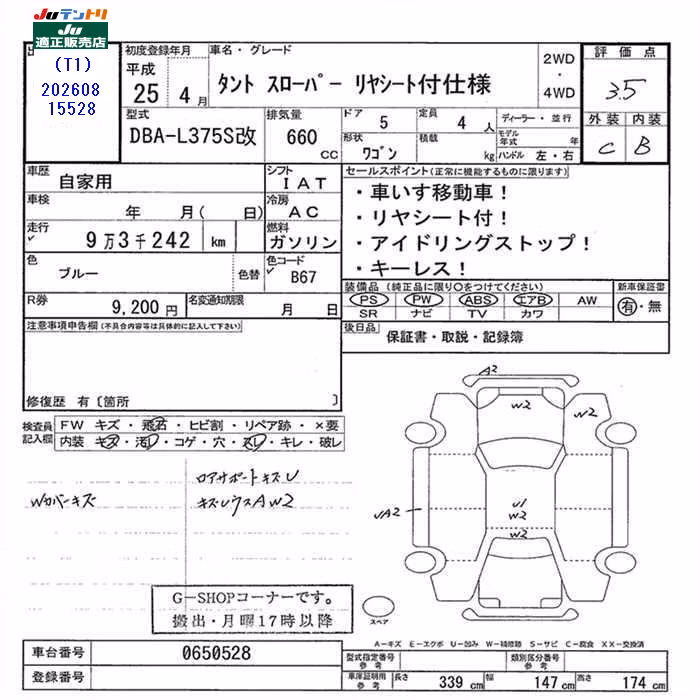 JUテントリ
JU
適正販売店
(T1)
202608
15528
初度登録年月
平成
25 4月
車名・グレード
タント スローパー リヤシート付仕様
2WD
・
4WD
評価点
3.5
外装 内装
C B
型式
DBA-L375S改
排気量
660 cc
ドア 5
定員 4 人
形状 ワゴン
積載 kg
ディーラー・並行
モデル年式 年
ハンドル 左・右
車歴 自家用
シフト IAT
車検 年 月( 日)
冷房 AC
走行 9万3千242 km
燃料 ガソリン
色 ブルー 色替
色コード B67
R券 9,200円
名変通知期限 月 日
セールスポイント(正常に機能するものに限ります)
・車いす移動車!
・リヤシート付!
・アイドリングストップ!
・キーレス!
装備品(純正品に限り○をつけてください)
PS PW ABS エアB AW
SR ナビ TV カワ
新車保証書
有・無
後日品 保証書・取説・記録簿
注意事項申告欄(不具合内容等は具体的に記入して下さい)
修復歴 有〔箇所 〕
検査員記入欄
FW キズ・飛石・ヒビ割・リペア跡・×要
内装 キズ・汚レ・コゲ・穴・スレ・キレ・破レ
Wカバーキズ
ロアサポートキズU
キズUウスAW2
A2
W2
W2
UA2
U1
W2
W2
スペア
G-SHOPコーナーです。
搬出・月曜17時以降
A-キズ E-エクボ U-凹み W-補修跡 S-サビ C-腐食 XX-交換済
車台番号 0650528
登録番号
型式指定番号 参考
類別区分番号 参考
車庫証明用 参考
長さ 339 cm
幅 147 cm
高さ 174 cm